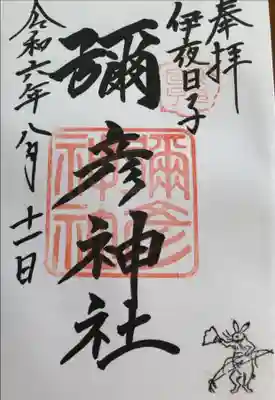 奉拝
伊夜日子
彌彦神社
令和六年八月十一日
彌彦神社